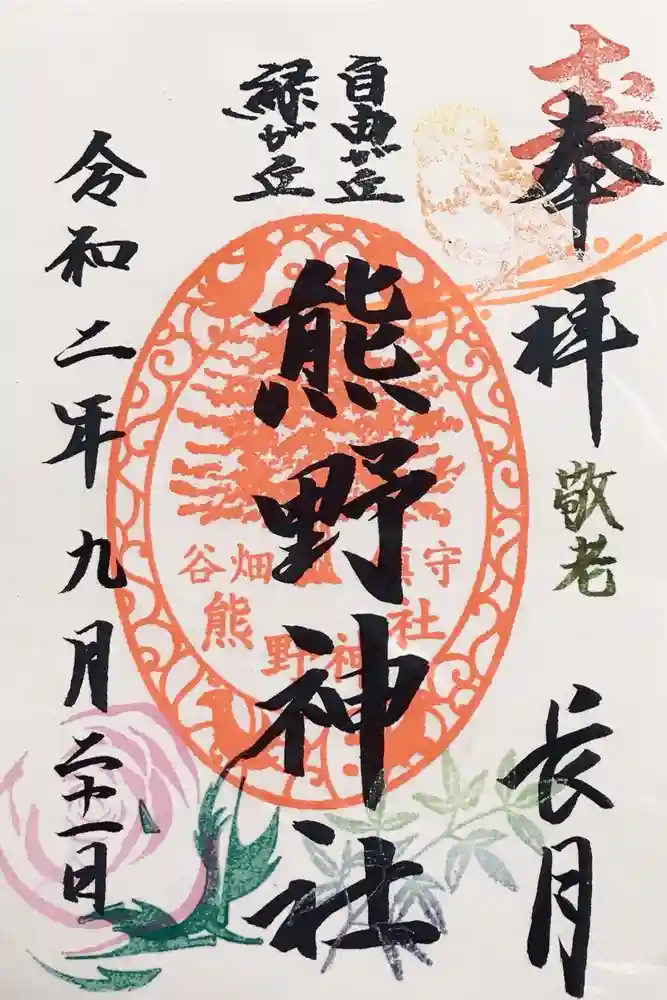 奉拝
寿
敬老
長月
自由が丘
緑が丘
熊野神社
谷畑 鎮守
熊野神社
令和二年九月二十一日